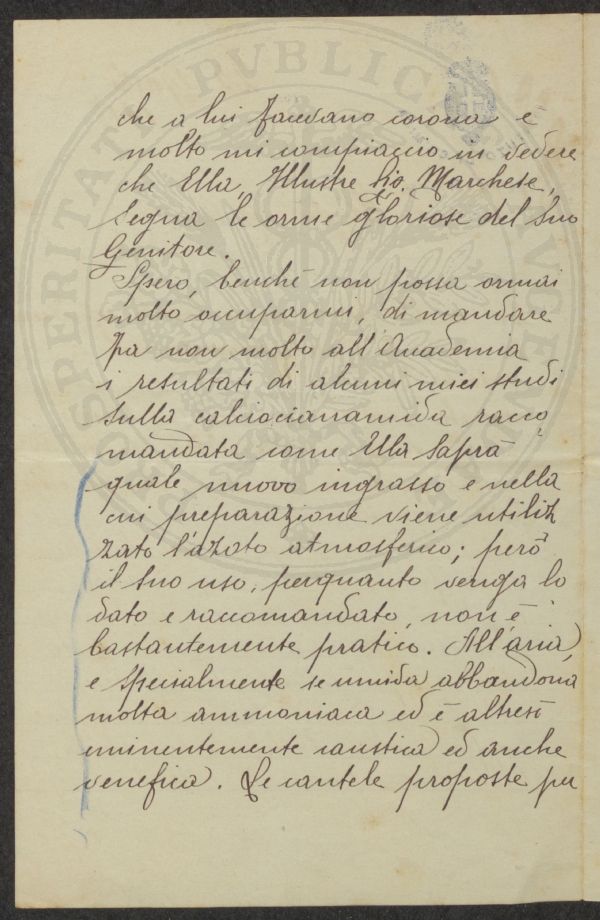 che a lui facevano corona e
molto mi compiaccio in vedere
che Ella, Illustre Sig. Marchese,
segua le orme gloriose del Suo
Genitore.
Spero, benchè non possa ormai
molto occuparmi, di mandare
fra non molto all'Accademia
i resultati di alcuni miei studi
sulla calciocianamida racco
mandata come Ella saprà
quale nuovo ingrasso e nella
cui preparazione viene utiliz
zato l'azoto atmosferico; però
il suo uso, perquanto venga lo
dato e raccomandato, non è
bastantemente pratico. All'aria,
e specialmente se umida abbandona
molta ammoniaca ed è altresì
eminentemente caustica ed anche
venefica. Le cautele proposte per